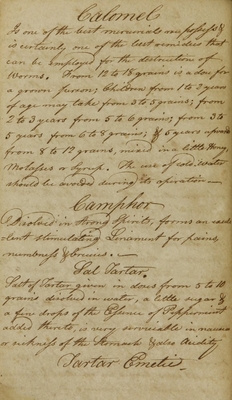 Calomel
is one of the best mercurials we possess &
is certainly one of the best remedies that
can be employed for the destruction of
Worms. From 12 to 15 grains is a dose for
a grown person; Children from 1 to 2 years
of age may take from 3 to 5 grains; from
2 to 3 years from 5 to 6 grains; from 3 to
5 years from 6 to 8 grains; & 5 years upwards
from 8 to 12 grains, mixed in a little Honey,
Molasses or Syrup. The use of cold water
should be avoided during its operation
Campher
Disolved in Strong Spirits, forms an excel
lent stimulating Liniment for pains,
numbness & bruises.
Sal Tartar.
Salt of Tartar given in doses from 5 to 10
grains disolved in water, a little sugar &
a few drops of the Essence of Peppermint
added thereto, is very serviceable in nausea
or sickness of the Stomach & also Acidity
Tartar Emetic.